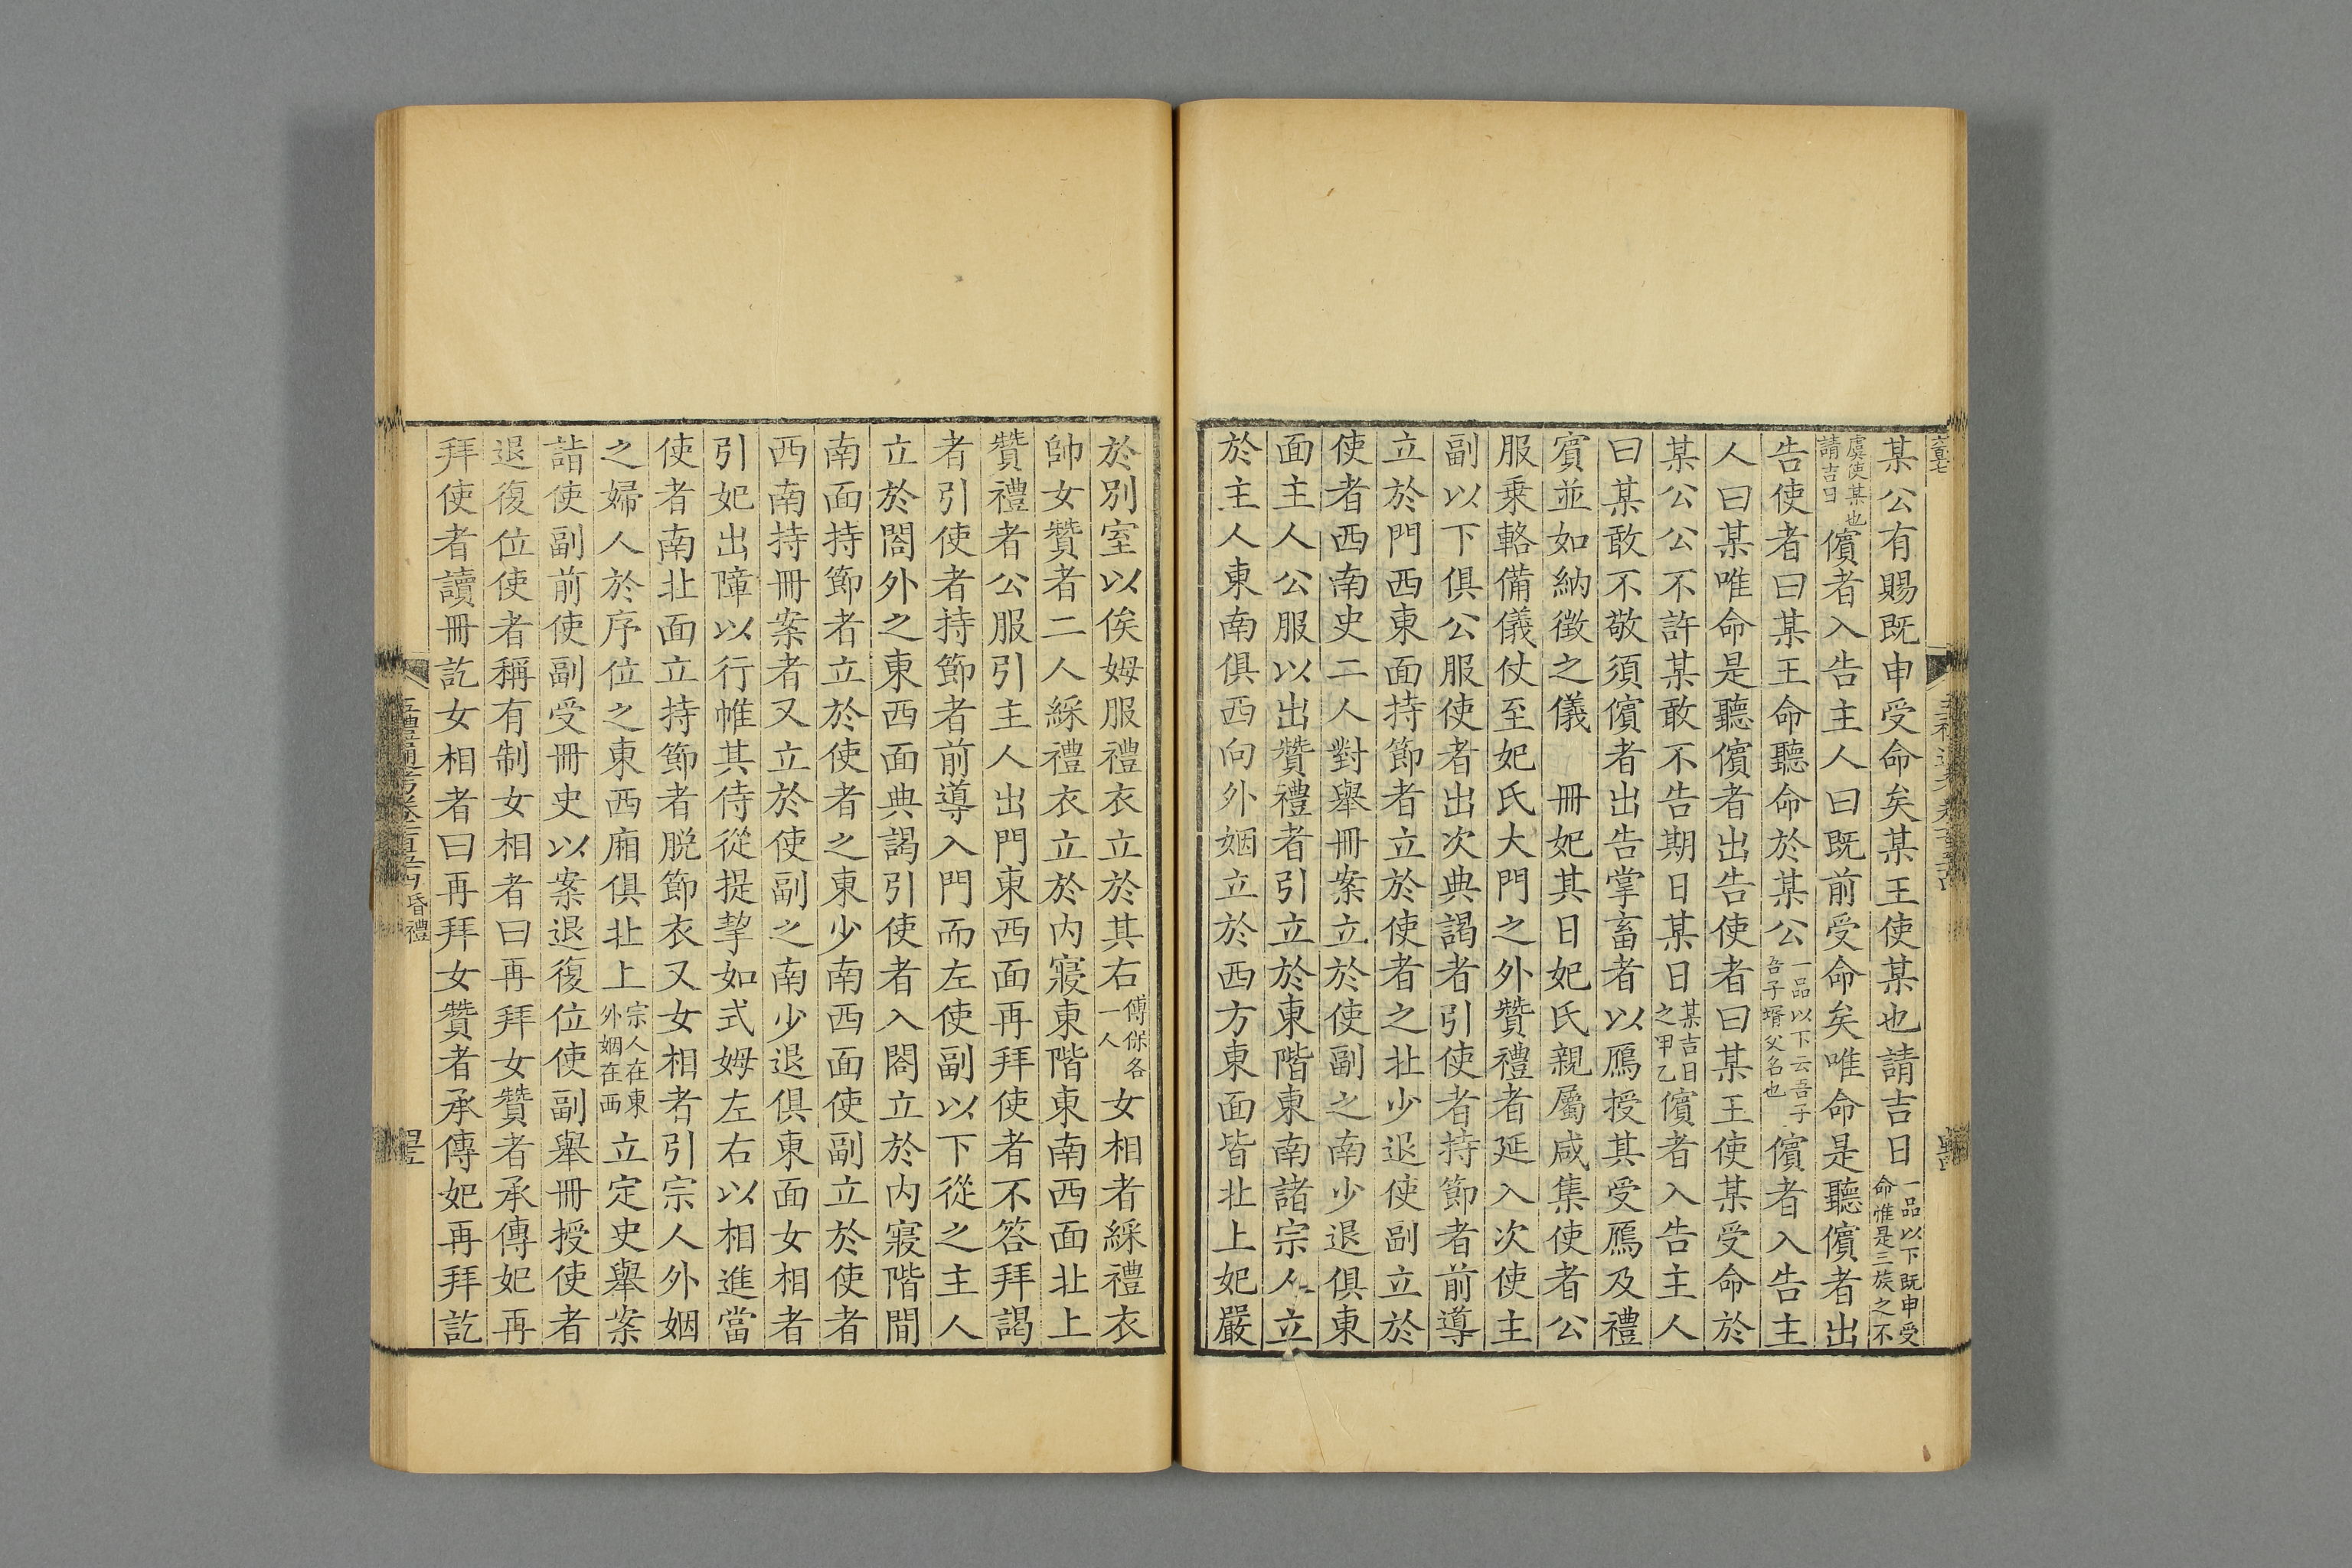 某公有賜既申受命矣某王使某也請吉日一品以下既申受命惟是三族之不
虞使某也請吉日儐者入告主人曰既前受命矣唯命是聽儐者出
告使者曰某王命聽命於某公一品以下云吾子告子壻父名也儐者入告主
人曰某唯命是聽儐者出告使者曰某王使某受命於
某公公不許某敢不告期日某日某吉日之甲乙儐者入告主人
曰某敢不敬須儐者出告掌畜者以鴈授其受鴈及禮
賓並如納徵之儀　冊妃其日妃氏親屬咸集使者公
服乗輅備儀仗至妃氏大門之外贊禮者延入次使主
副以下俱公服使者出次典謁者引使者持節者前導
立於門西東面持節者立於使者之北少退使副立於
使者西南史二人對舉冊案立於使副之南少退俱東
面主人公服以出贊禮者引立於東階東南諸宗人立
於主人東南俱西向外姻立於西方東面皆北上妃嚴
於別室以俟姆服禮衣立於其右傅保各一人女相者綵禮衣
帥女贊者二人綵禮衣立於內寢東階東南西面北上
贊禮者公服引主人出門東西面再拜使者不答拜謁
者引使者持節者前導入門而左使副以下從之主人
立於閤外之東西面典謁引使者入閤立於內寢階間
南面持節者立於使者之東少南西面使副立於使者
西南持冊案者又立於使副之南少退俱東面女相者
引妃出障以行帷其侍從提挈如式姆左右以相進當
使者南北面立持節者脫節衣又女相者引宗人外姻
之婦人於序位之東西廂俱北上宗人在東外姻在西立定史舉案
詣使副前使副受冊史以案退復位使副舉冊授使者
退復位使者稱有制女相者曰再拜女贊者承傳妃再
拜使者讀冊訖女相者曰再拜女贊者承傳妃再拜訖
昏禮